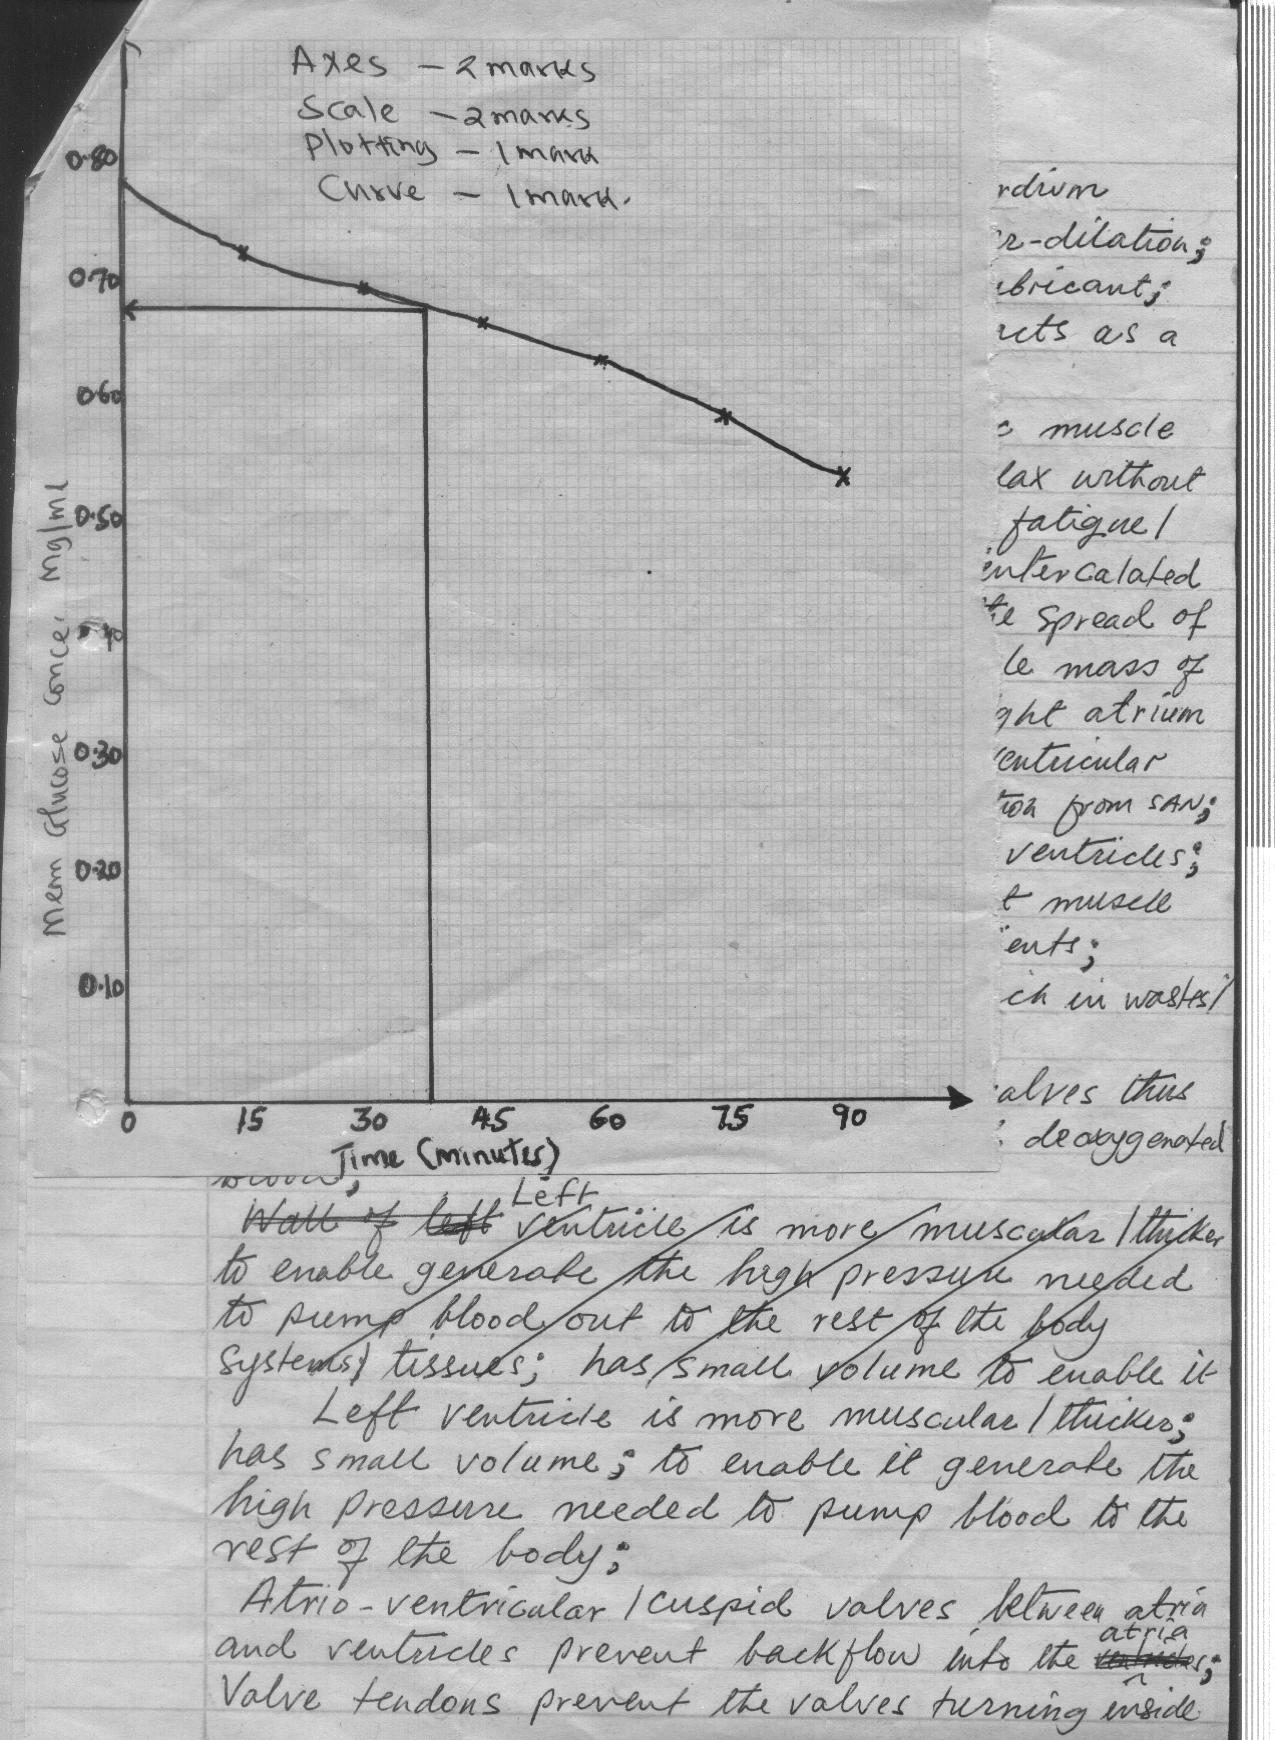 Axes - 2 marks
Scale - 2 marks
Plotting - 1 mark
Curve - 1 mark.
0.80
0.70
0.60
0.50
0.30
0.20
0.10
Mean Glucose conce. Mg/ml
0 15 30 45 60 75 90
Time (minutes)
rdium
r-dilation;
bricant;
cts as a
muscle
lax without
fatigue/
intercalated
te spread of
le mass of
ght atrium
entricular
tion from SAN;
ventricles;
t muscle
ents;
ich in wastes/
alves thus
deoxygenated
blood;
Left
Wall of left ventricle is more muscular / thicker
to enable generate the high pressure needed
to pump blood out to the rest of the body
systems/ tissues; has small volume to enable it
Left ventricle is more muscular / thicker;
has small volume; to enable it generate the
high pressure needed to pump blood to the
rest of the body;
Atrio-ventricular / cuspid valves between atria
and ventricles prevent backflow into the atria ventricles;
Valve tendons prevent the valves turning inside